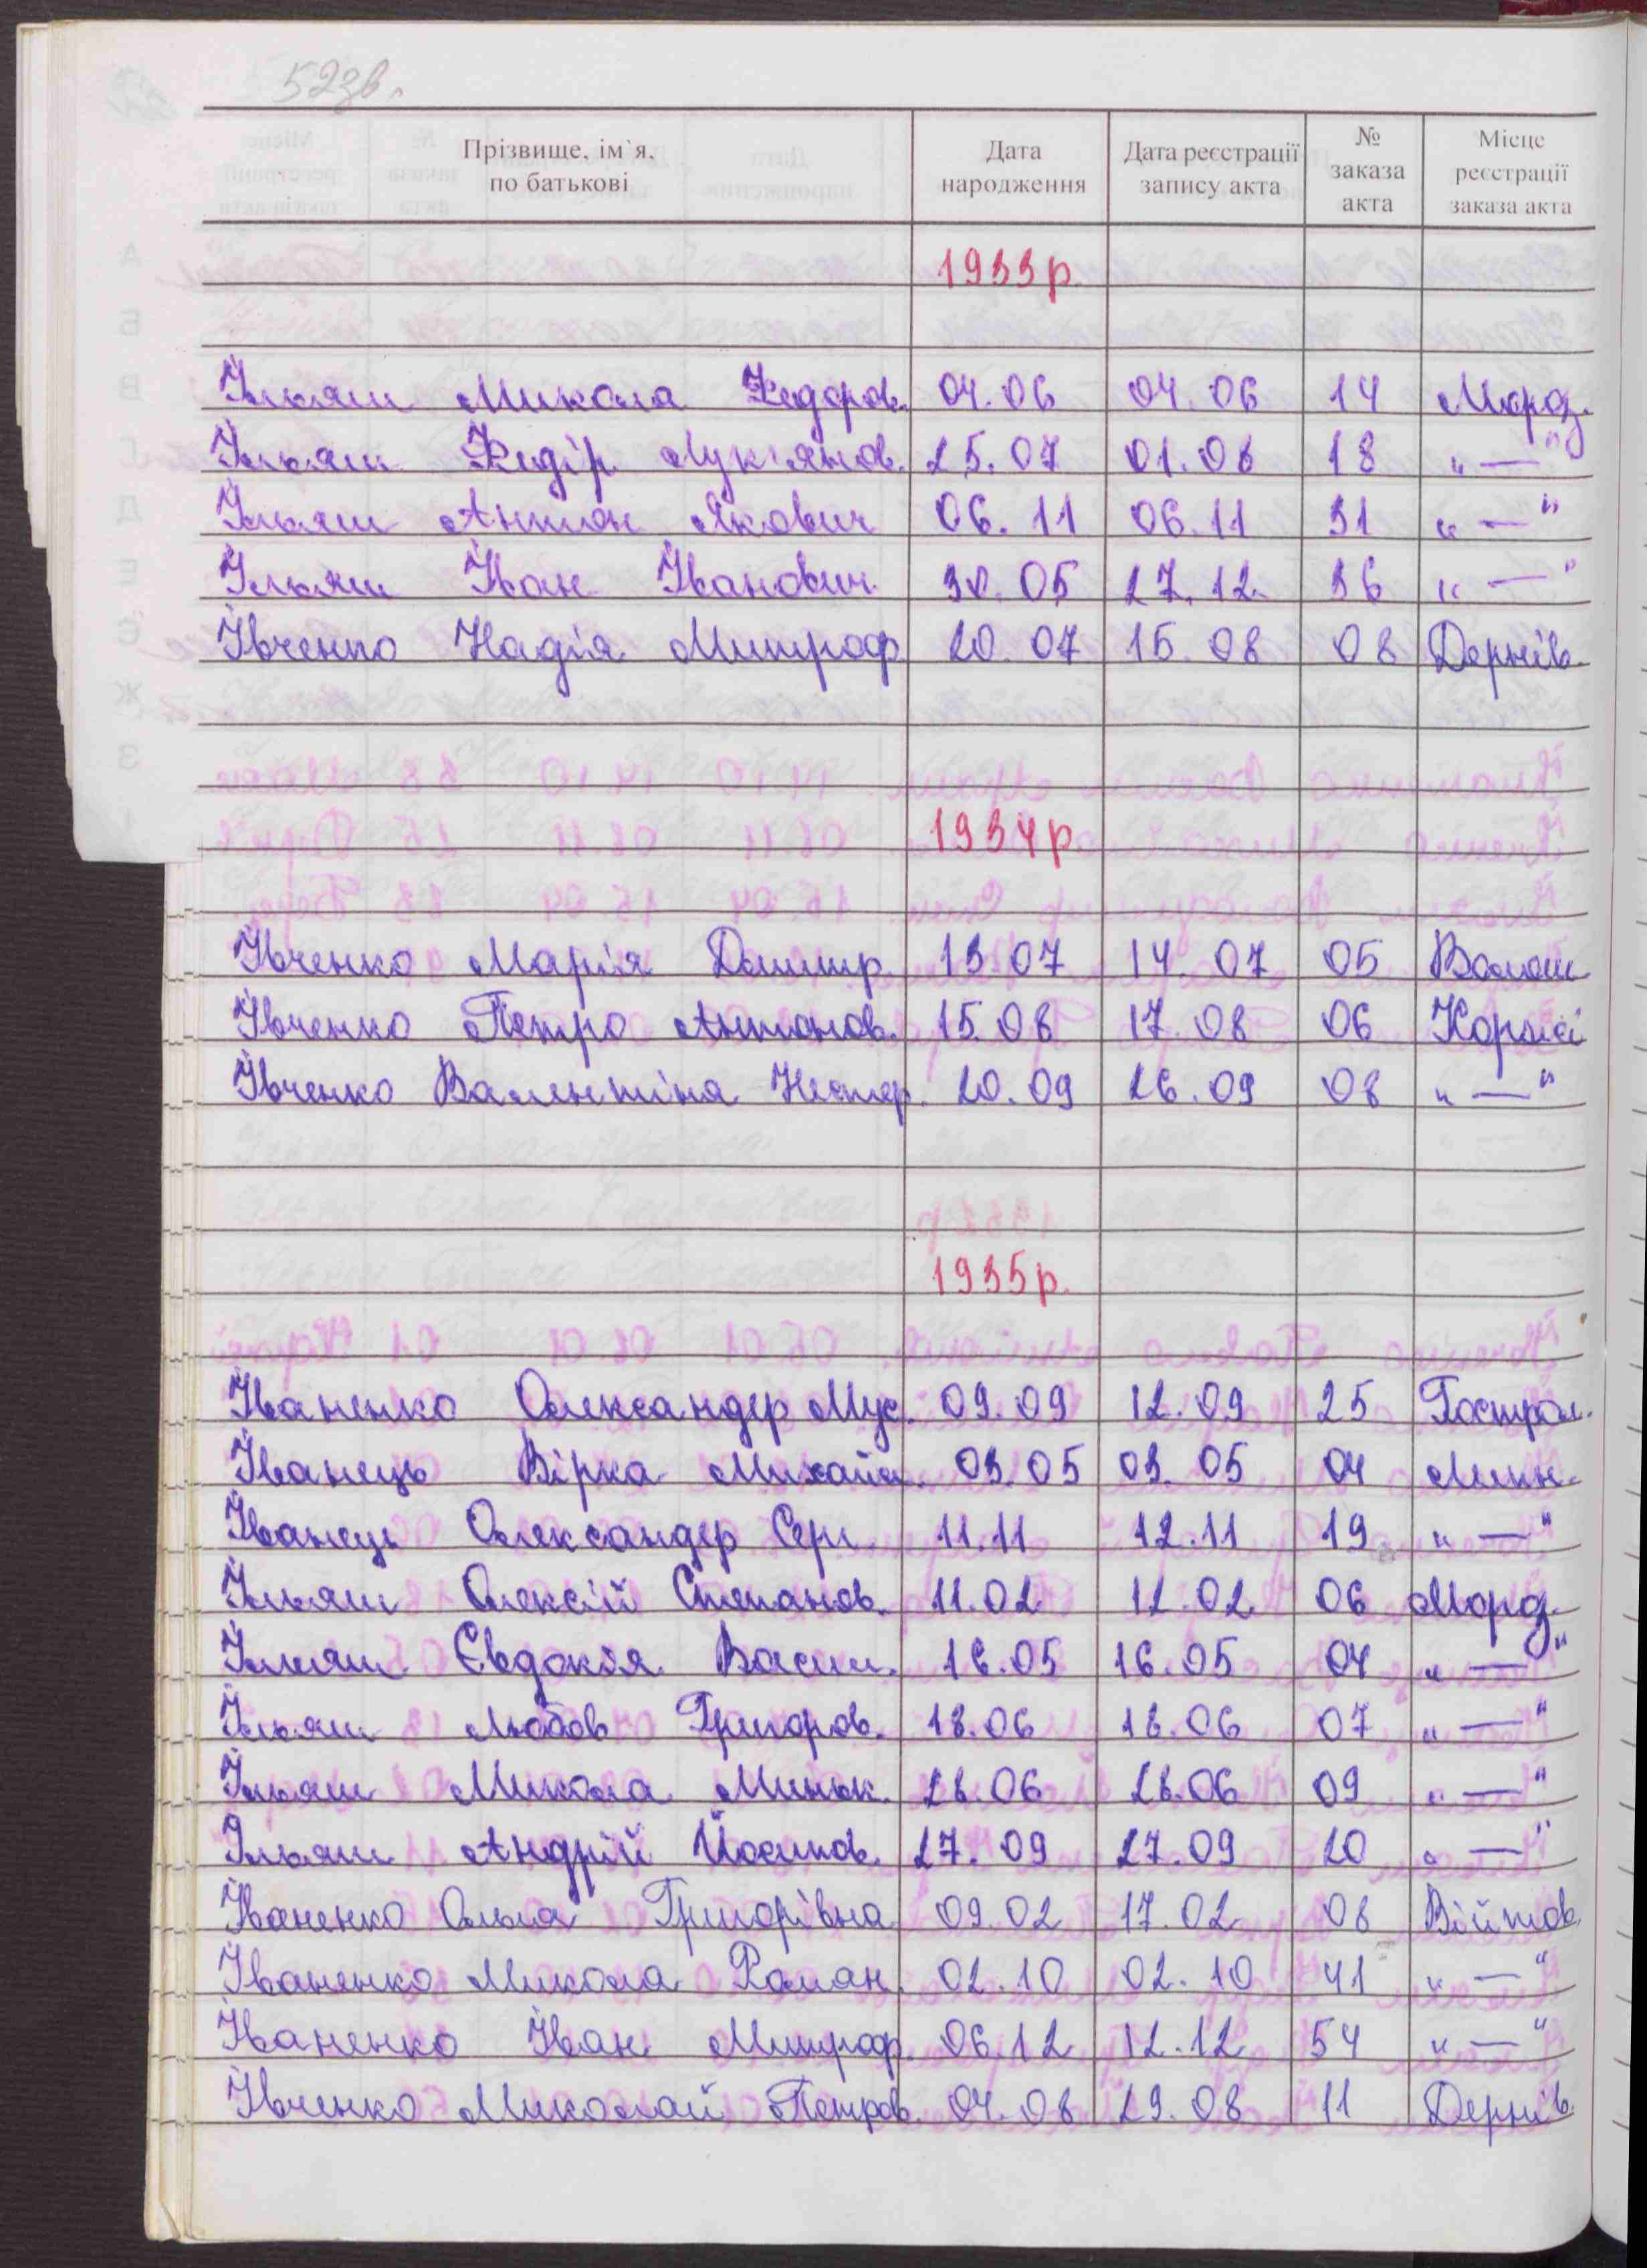 52зв.
Прізвище, ім`я, по батькові | Дата народження | Дата реєстрації запису акта | № заказа акта | Місце реєстрації заказа акта
1933р.
Ільяш Микола Федоров. 04.06 04.06 14 Морд.
Ільяш Федір Лук'янов. 25.07 01.08 18 "—"
Ільяш Антон Якович 06.11 06.11 31 "—"
Ільяш Іван Іванович 30.05 27.12. 36 "—"
Івченко Надія Митроф. 20.07 15.08 08 Дернів.
1934р
Івченко Марія Дмитр. 13.07 14.07 05 Волош
Івченко Петро Антонов. 15.08 17.08 06 Коржі
Івченко Валентіна Нестер. 20.09 26.09 08 "—"
1935р.
Іваненко Олександер Мус. 09.09 12.09 25 Гострол.
Іванець Вірка Михайл. 03.05 03.05 04 Минк.
Іванець Олександер Серг. 11.11 12.11 19 "—"
Ільяш Олексій Степанов. 11.02 12.02 06 Морд.
Ільяш Євдокія Васил. 16.05 16.05 04 "—"
Ільяш Любов Григоров. 18.06 18.06 07 "—"
Ільяш Микола Миньк. 28.06 28.06 09 "—"
Ільяш Андрій Йосипов. 27.09 27.09 20 "—"
Іваненко Ольга Григорівна 09.02 17.02 08 Війтов.
Іваненко Микола Роман. 02.10 02.10 41 "—"
Іваненко Іван Митроф. 06.12 12.12 54 "—"
Івченко Миколай Петров. 04.08 29.08 11 Дернів.